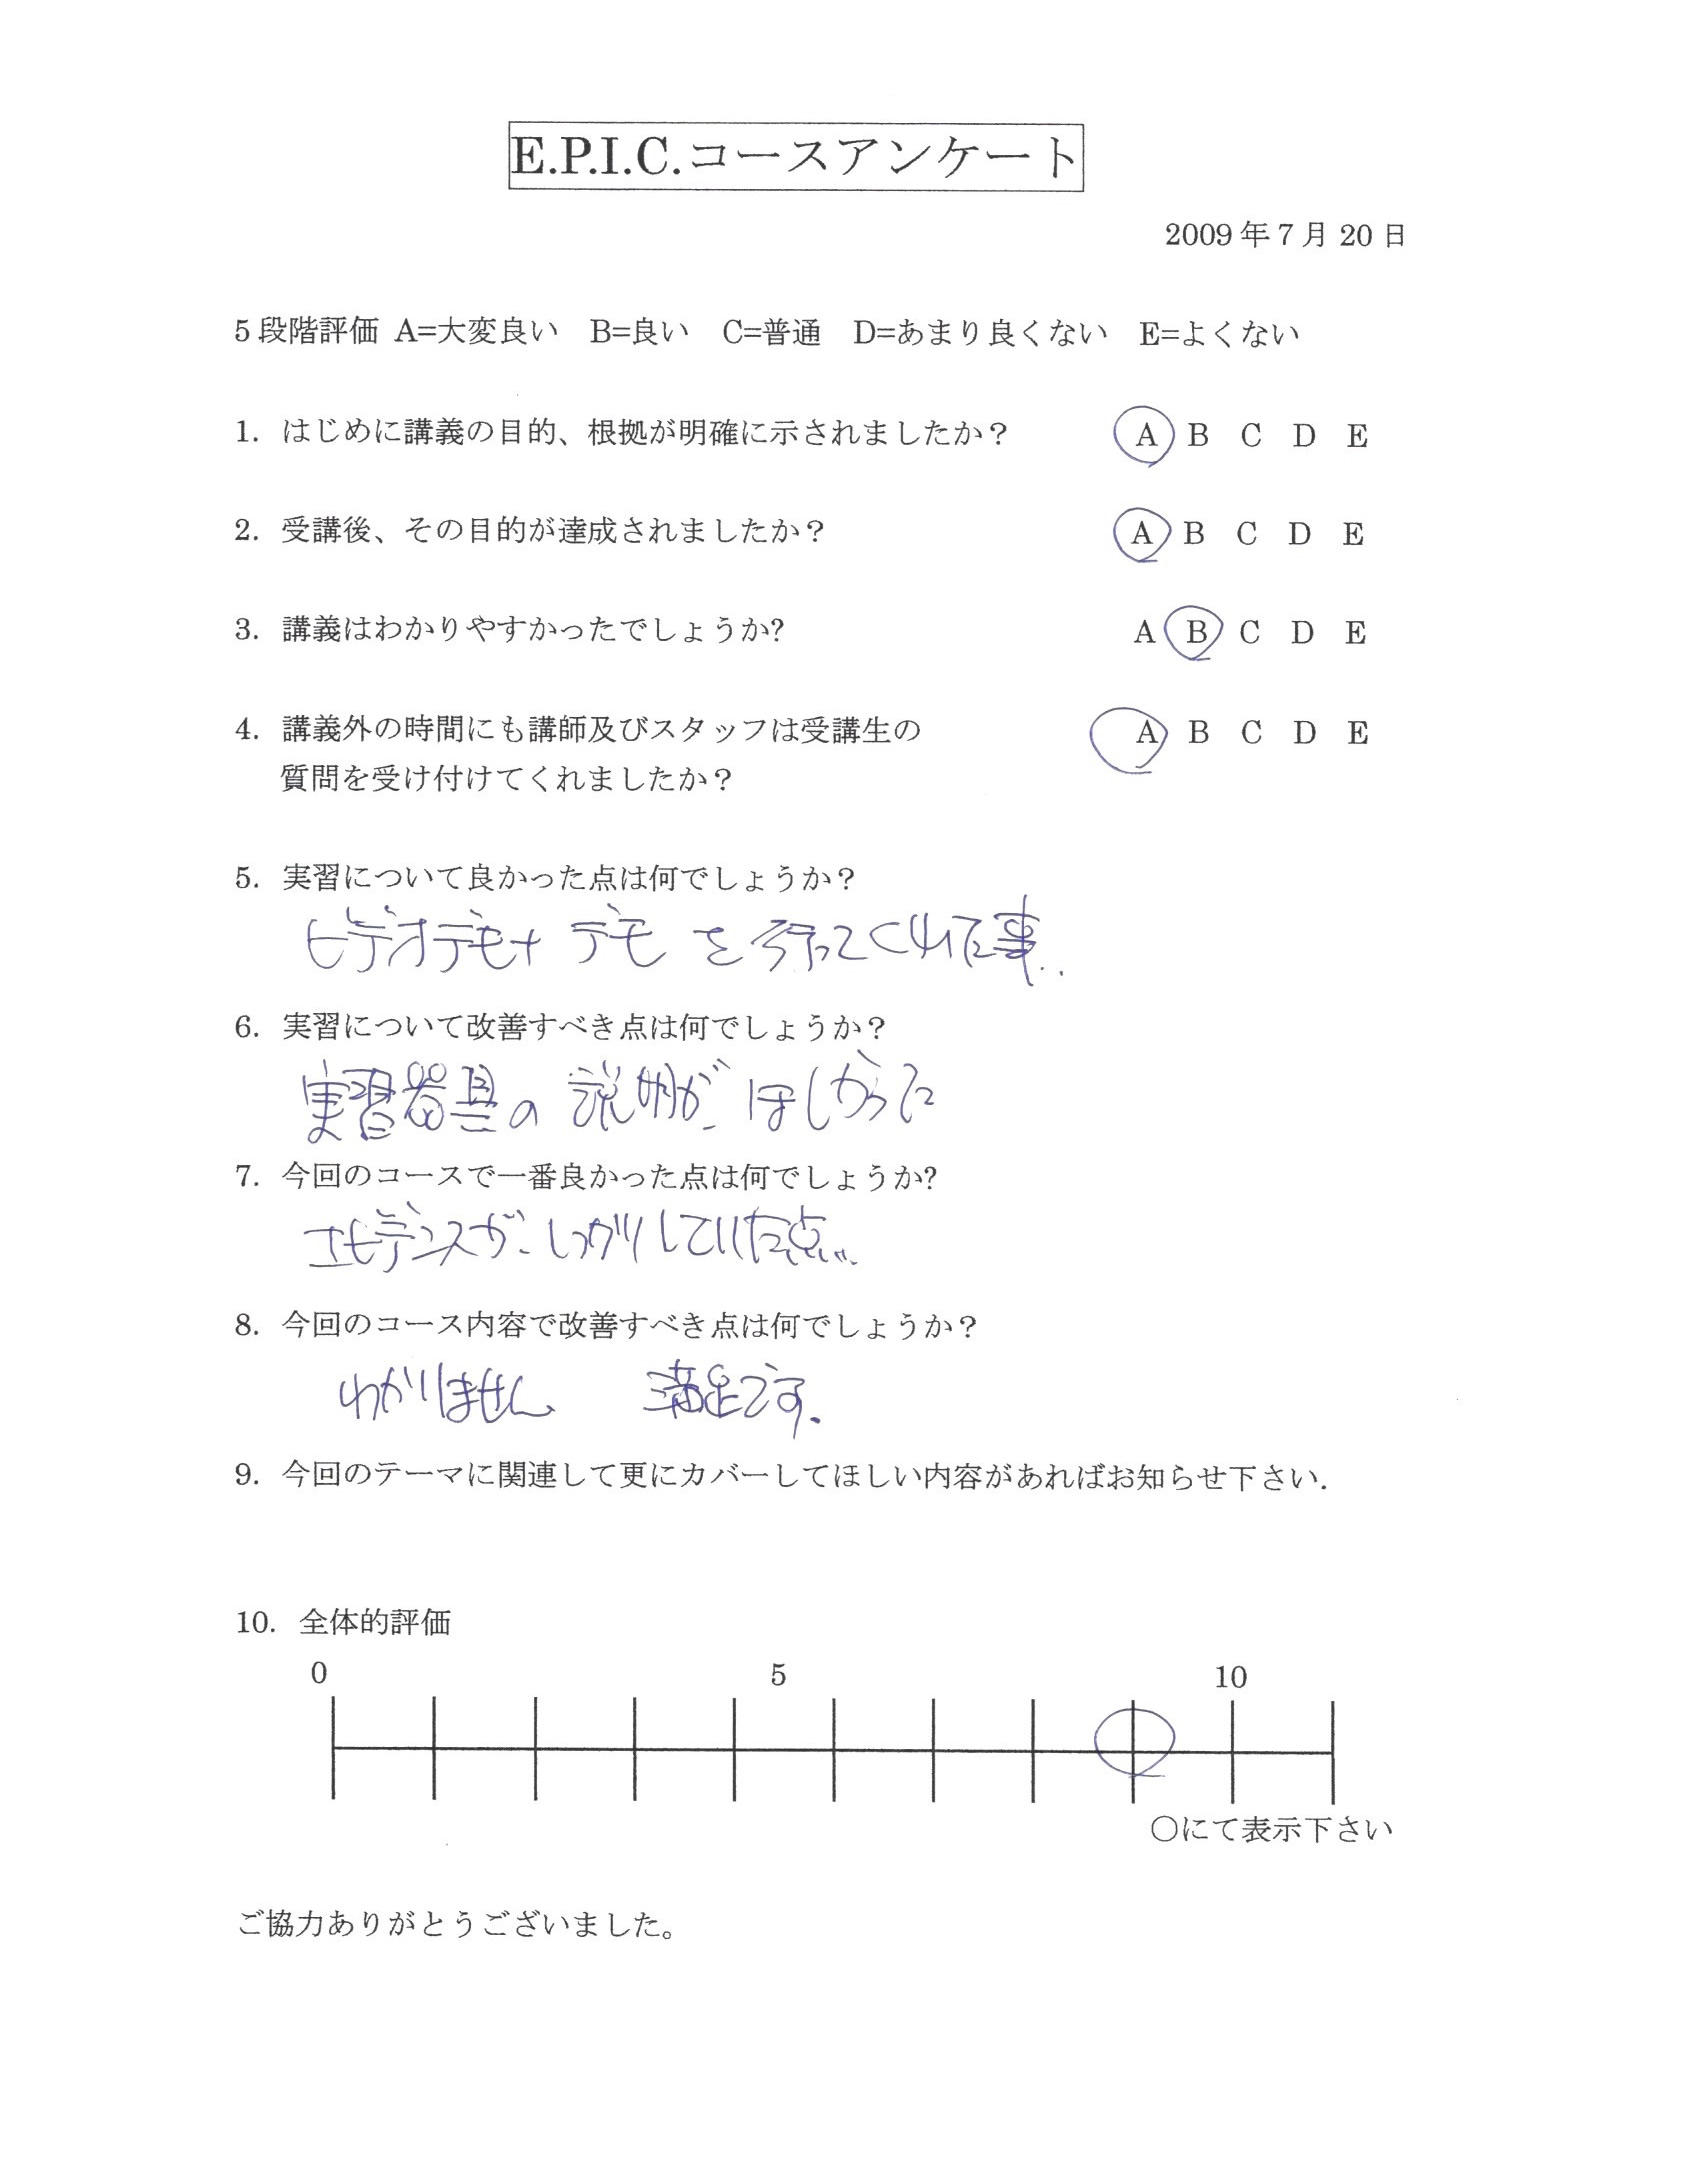 E.P.I.C.コースアンケート
2009年7月20日
5段階評価 A=大変良い B=良い C=普通 D=あまり良くない E=よくない
1. はじめに講義の目的、根拠が明確に示されましたか？ A B C D E
2. 受講後、その目的が達成されましたか？ A B C D E
3. 講義はわかりやすかったでしょうか? A B C D E
4. 講義外の時間にも講師及びスタッフは受講生の A B C D E
質問を受け付けてくれましたか？
5. 実習について良かった点は何でしょうか？
ビデオデモ+デモを行ってくれた事..
6. 実習について改善すべき点は何でしょうか？
実習器具の説明がほしかった
7. 今回のコースで一番良かった点は何でしょうか?
エビデンスがしっかりしていた点...
8. 今回のコース内容で改善すべき点は何でしょうか？
わかりません 満足です.
9. 今回のテーマに関連して更にカバーしてほしい内容があればお知らせ下さい.
10. 全体的評価
0 5 10
○にて表示下さい
ご協力ありがとうございました。